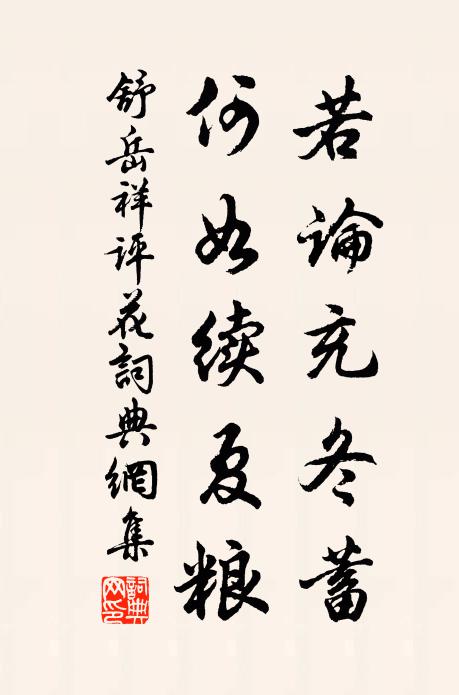 若論充冬蓄
何如续夏粮
舒岳祥评花詞典網集
詞典網印